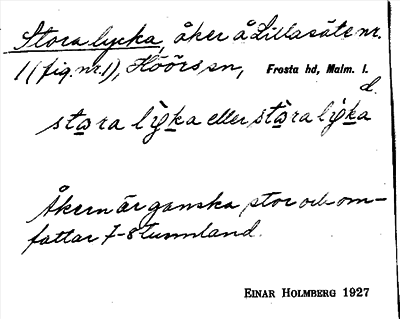 Stora lycka, åker å Lillasäte nr.
1 (fig. nr. 1), Höörs sn, Frosta hd, Malm. l.
stara lyka eller stara lyka
d.
Åkern är ganska stor och om-
fattar 7-8 tunnland.
EINAR HOLMBERG 1927